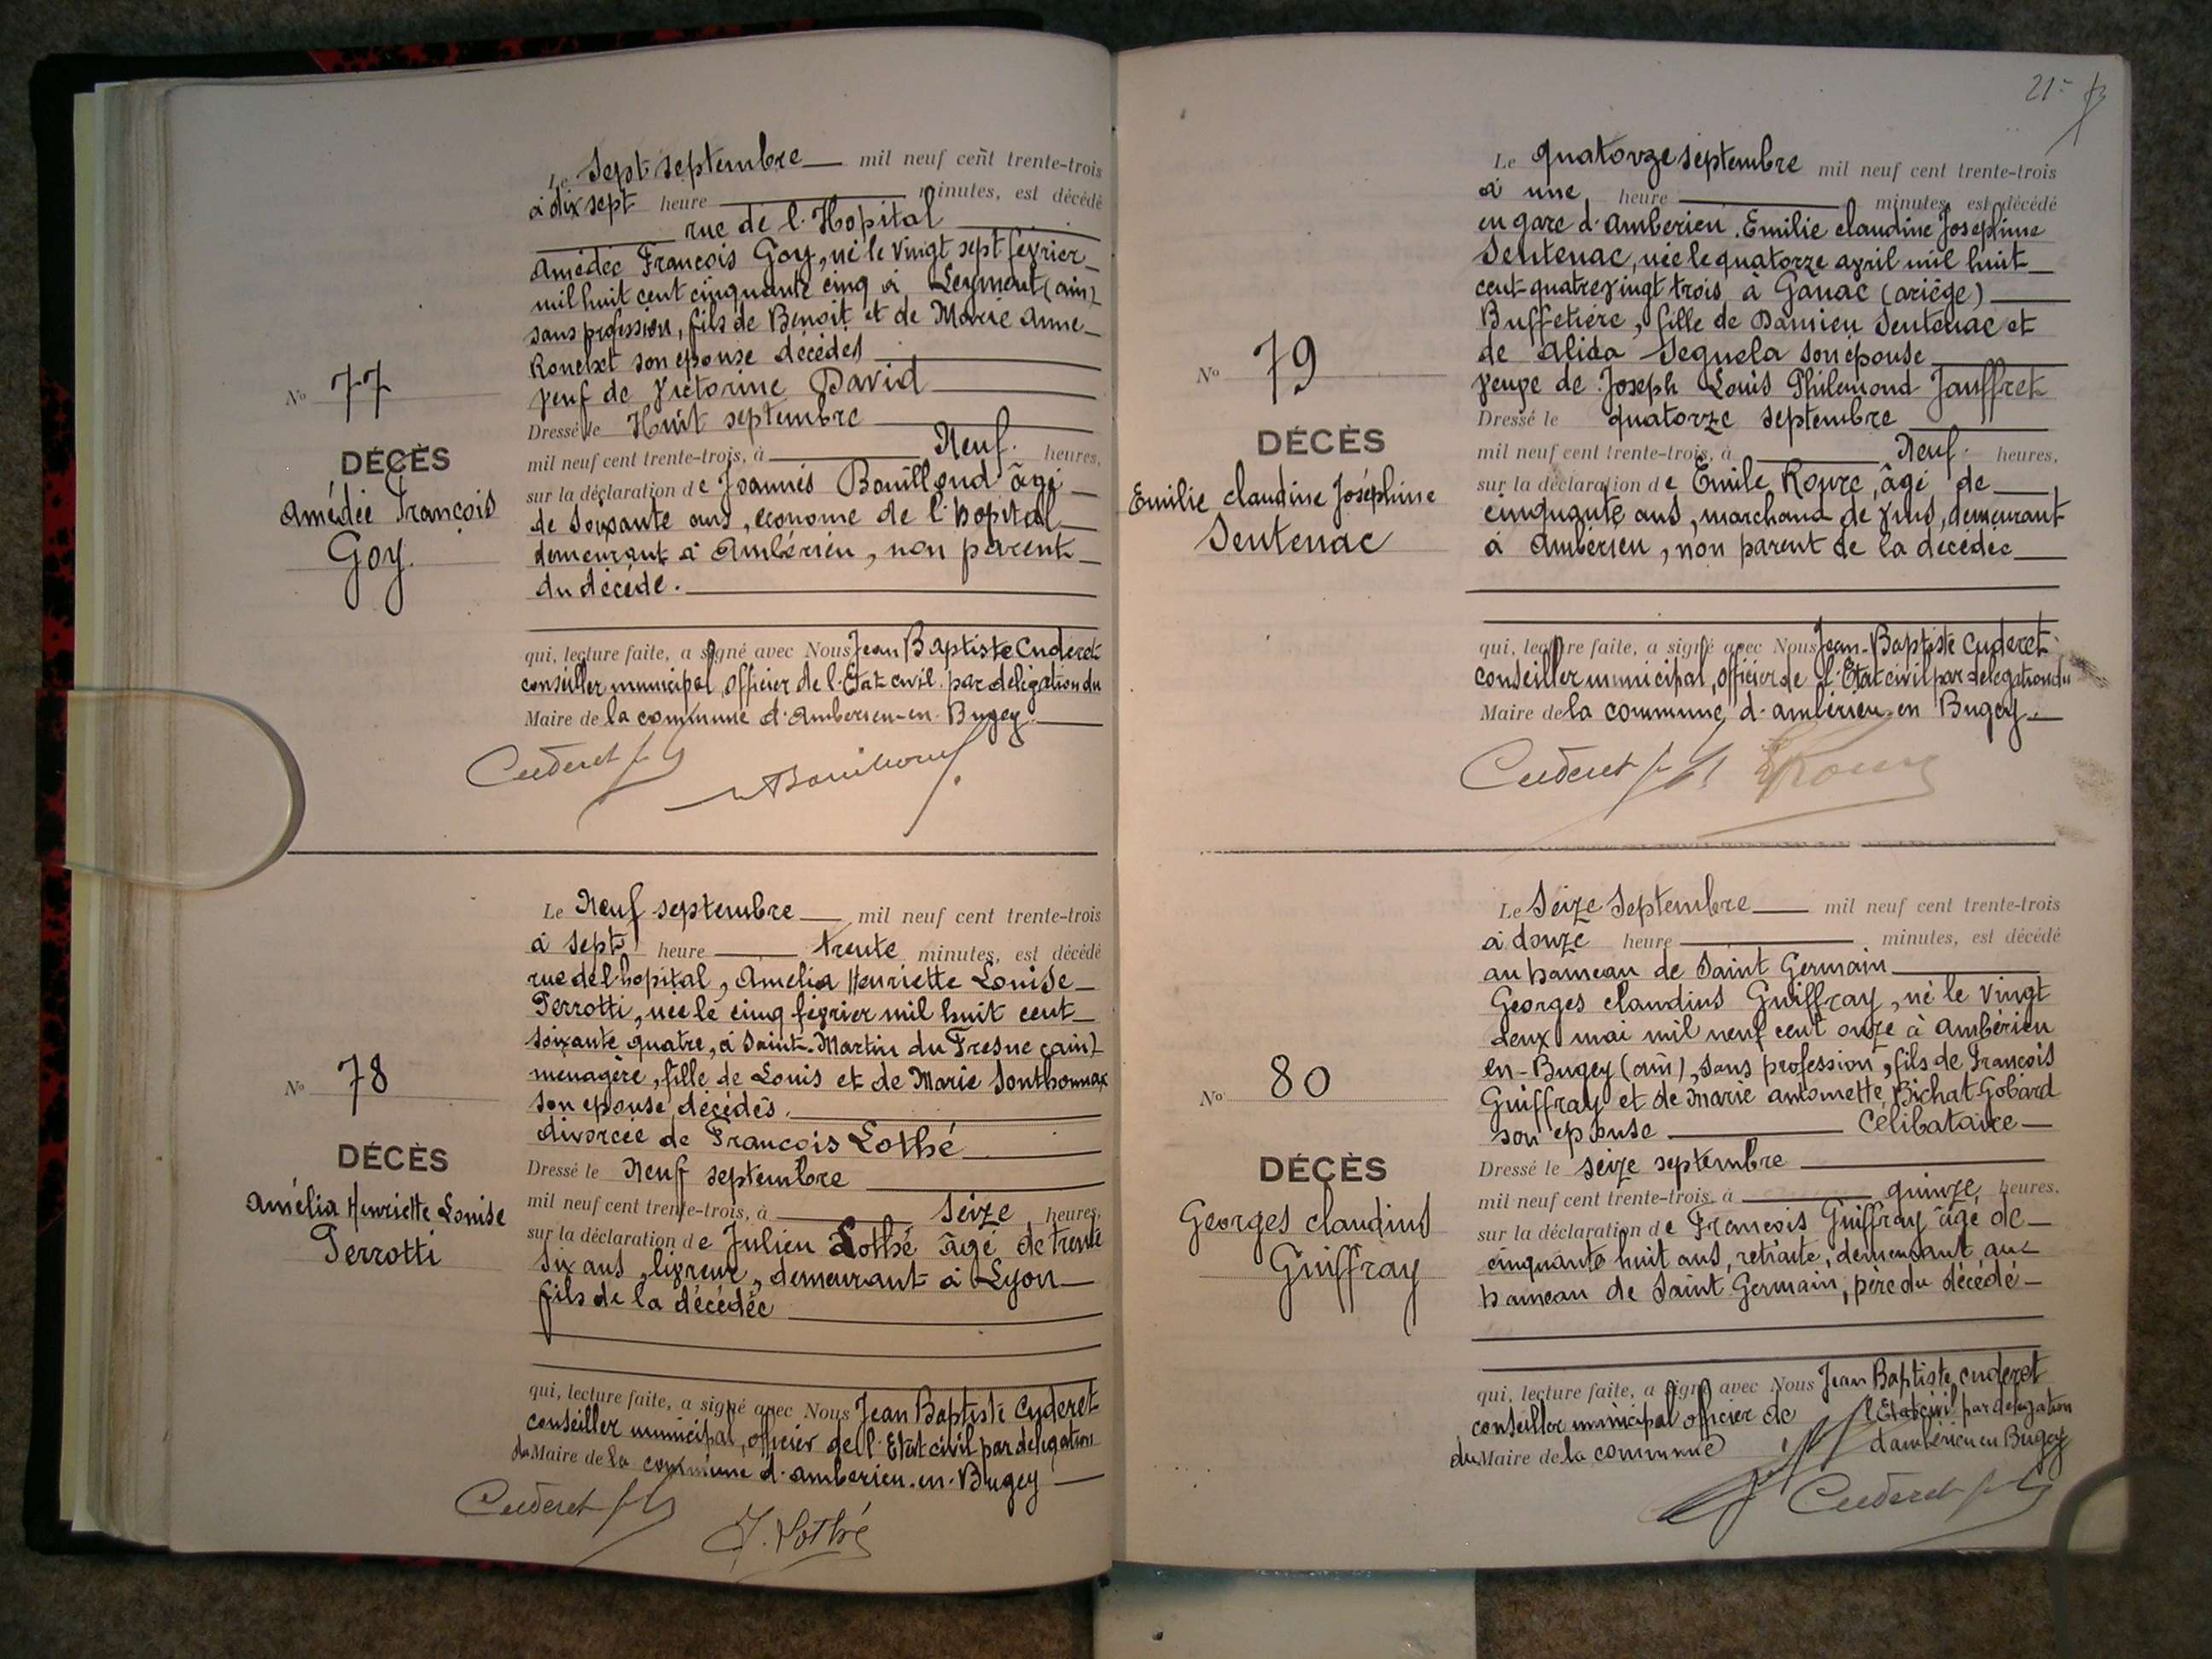 Le Sept septembre mil neuf cent trente-trois
à dix sept heure minutes, est décédé
rue de l'Hopital
Amédée François Goy, né le vingt sept février
mil huit cent cinquante cinq à Leyment (ain)
sans profession, fils de Benoit et de Marie Anne
son épouse décédés
veuf de Victorine David
Dressé le Huit septembre
mil neuf cent trente-trois, à Neuf heures,
sur la déclaration de Joannès Bouillond âgé
de soixante ans, econome de l'hopital
demeurant à Ambérieu, non parent
du décédé.
qui, lecture faite, a signé avec Nous Jean Baptiste Cuderet
conseiller municipal, officier de l'Etat civil par délégation du
Maire de la commune d'Amberieu-en-Bugey
Cuderet
No 77
DÉCÈS
Amédée François
Goy.
Le Neuf septembre mil neuf cent trente-trois
à sept heure trente minutes, est décédé
rue de l'hopital, Amelia Henriette Louise
Perrotti, née le cinq février mil huit cent
soixante quatre, à Saint-Martin du Fresne (ain)
menagère, fille de Louis et de Marie Sonthonnax
son epouse, décédés.
divorcée de François Lothé
Dressé le Neuf septembre
mil neuf cent trente-trois, à Seize heures,
sur la déclaration de Julien Lothé âgé de trente
six ans, livreur, demeurant à Lyon
fils de la décédée
qui, lecture faite, a signé avec Nous Jean Baptiste Cuderet
conseiller municipal, officier de l'Etat civil par delegation
du Maire de la commune d'amberieu-en-Bugey
Cuderet
J. Lothé
No 78
DÉCÈS
Amélia Henriette Louise
Perrotti
21
Le quatorze septembre mil neuf cent trente-trois
à une heure minutes, est décédé
en gare d'Amberieu. Emilie claudine Josephine
Sentenac, née le quatorze avril mil huit
cent quatre vingt trois à Ganac (ariège)
Buffetière, fille de Damien Sentenac et
de Alida Seguela son épouse
veuve de Joseph Louis Philemond Jauffret
Dressé le quatorze septembre
mil neuf cent trente-trois, à Neuf heures,
sur la déclaration de Emile Roure, âgé de
cinquante ans, marchand de vins, demeurant
à Ambérieu, non parent de la décédée
qui, lecture faite, a signé avec Nous Jean-Baptiste Cuderet
conseiller municipal, officier de l'Etat civil par delegation du
Maire de la commune d'ambérieu-en Bugey.
Cuderet
No 79
DÉCÈS
Emilie claudine Joséphine
Sentenac
Le Seize Septembre mil neuf cent trente-trois
à douze heure minutes, est décédé
au hameau de Saint Germain
Georges claudius Guiffray, né le vingt
deux mai mil neuf cent onze à Ambérieu
en-Bugey (ain), sans profession, fils de François
Guiffray et de Marie antoinette Bichat Gobard
son epouse Célibataire
Dressé le seize septembre
mil neuf cent trente-trois, à quinze heures,
sur la déclaration de François Guiffray âgé de
cinquante huit ans, retraité, demeurant au
hameau de Saint Germain, père du décédé
qui, lecture faite, a signé avec Nous Jean Baptiste Cuderet
conseiller municipal officier de l'Etat civil par delegation
du Maire de la commune d'ambérieu en Bugey
Cuderet
No 80
DÉCÈS
Georges claudius
Guiffray